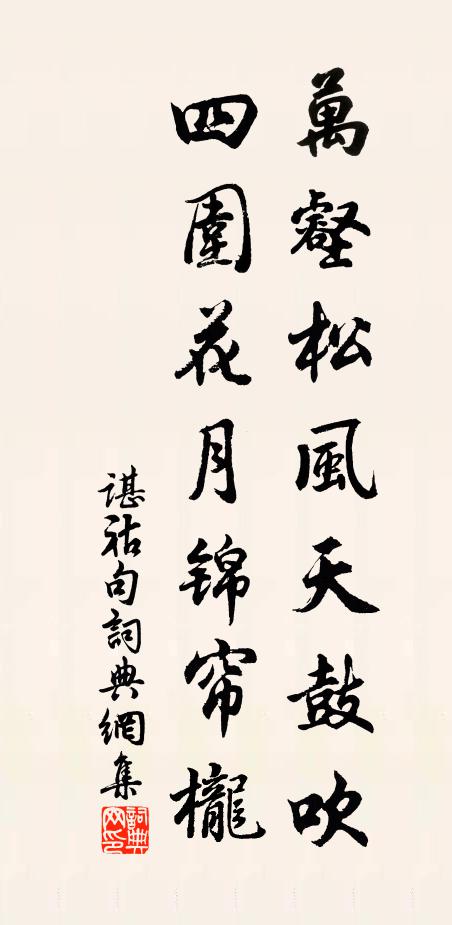 萬壑松風天鼓吹
四圍花月錦帘櫳
谌祜句詞典網集
詞典网印